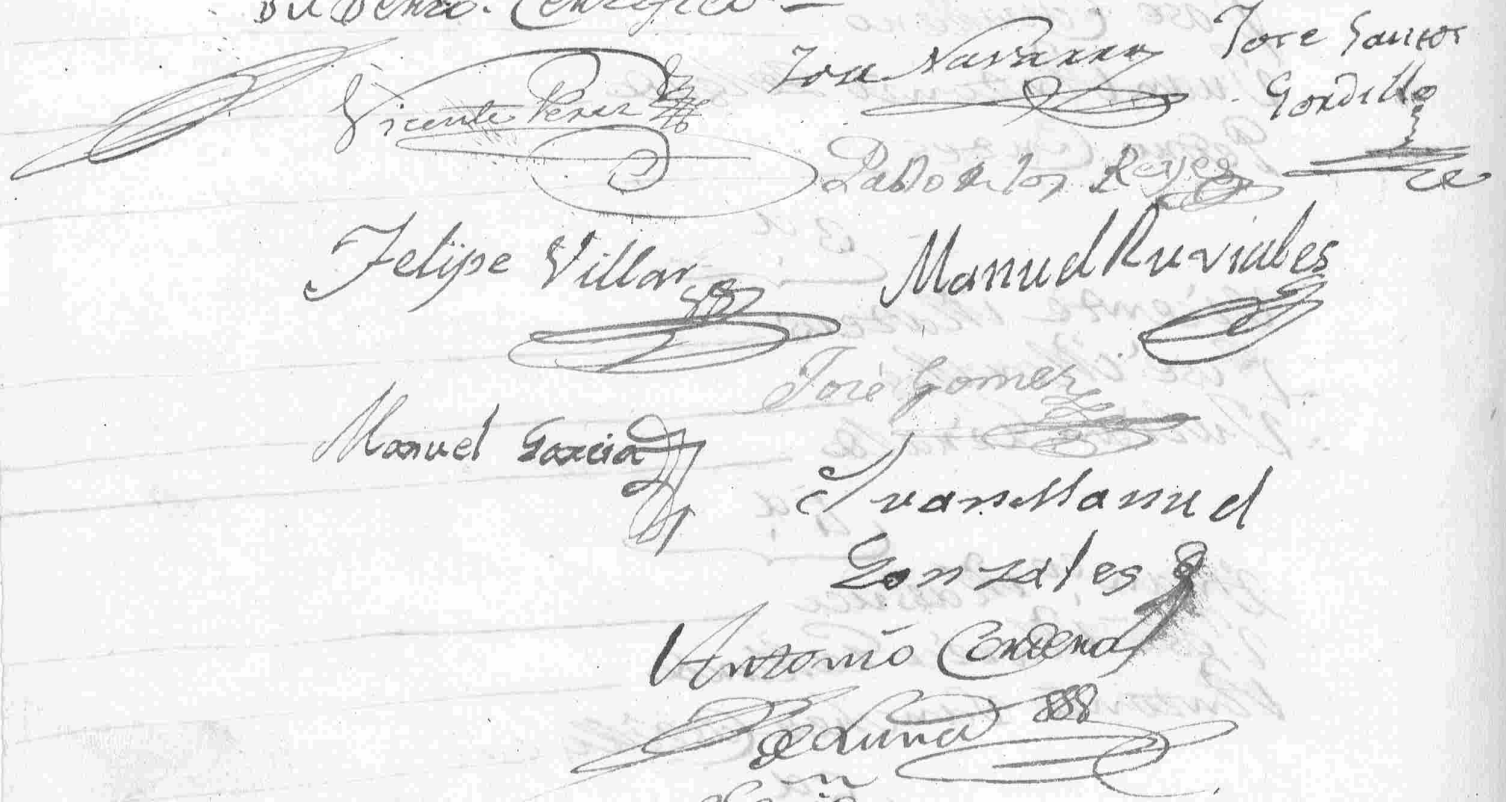 Vicente Perez
Jose Navarro
Jose Santos
Gordillo
Pablo de los Reyes
Felipe Villar
Manuel Ruviales
José Gomez
Manuel Garcia
Juan Manuel
Gonzales
Antonio Cordena
de Luna